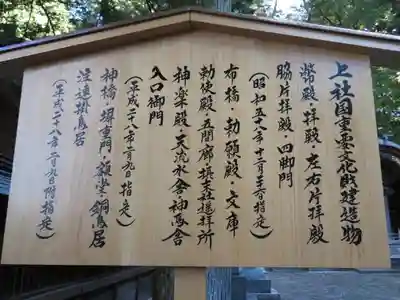 上社国重要文化財建造物
幣殿・拝殿・左右片拝殿
脇片拝殿・四脚門
(昭和五十八年十二月二十六日指定)
布橋・勅願殿・文庫
勅使殿・五間廊・摂末社遙拝所
神楽殿・天流水舎・神馬舎
入口御門
(平成二十八年二月九日指定)
神橋・塀重門・額堂・銅鳥居
波除鳥居
(平成二十八年二月九日附指定)